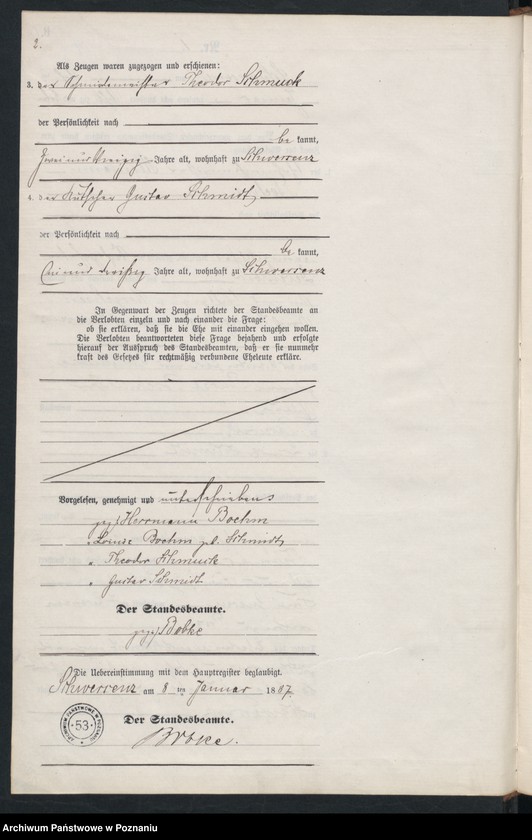 2.
Als Zeugen waren zugezogen und erschienen:
3. der Schmiedemeister Theodor Schmuck
der Persönlichkeit nach
be kannt,
zwei und dreißig Jahre alt, wohnhaft zu Schwersenz
4. der Kutscher Gustav Schmidt,
der Persönlichkeit nach
be kannt,
und dreißig Jahre alt, wohnhaft zu Schwersenz
In Gegenwart der Zeugen richtete der Standesbeamte an
die Verlobten einzeln und nach einander die Frage:
ob sie erklären, daß sie die Ehe mit einander eingehen wollen.
Die Verlobten beantworteten diese Frage bejahend und erfolgte
hierauf der Ausspruch des Standesbeamten, daß er sie nunmehr
kraft des Gesetzes für rechtmäßig verbundene Eheleute erkläre.
Vorgelesen, genehmigt und unterschrieben
gez. Herrmann Boehm
" Louise Boehm geb. Schmidt,
" Theodor Schmuck
" Gustav Schmidt
Der Standesbeamte.
gez. Bobke
Die Uebereinstimmung mit dem Hauptregister beglaubigt.
Schwersenz am 8 ten Januar 1887.
Der Standesbeamte.
Bobke.
ARCHIWUM PAŃSTWOWE W POZNANIU
53
Archiwum Państwowe w Poznaniu